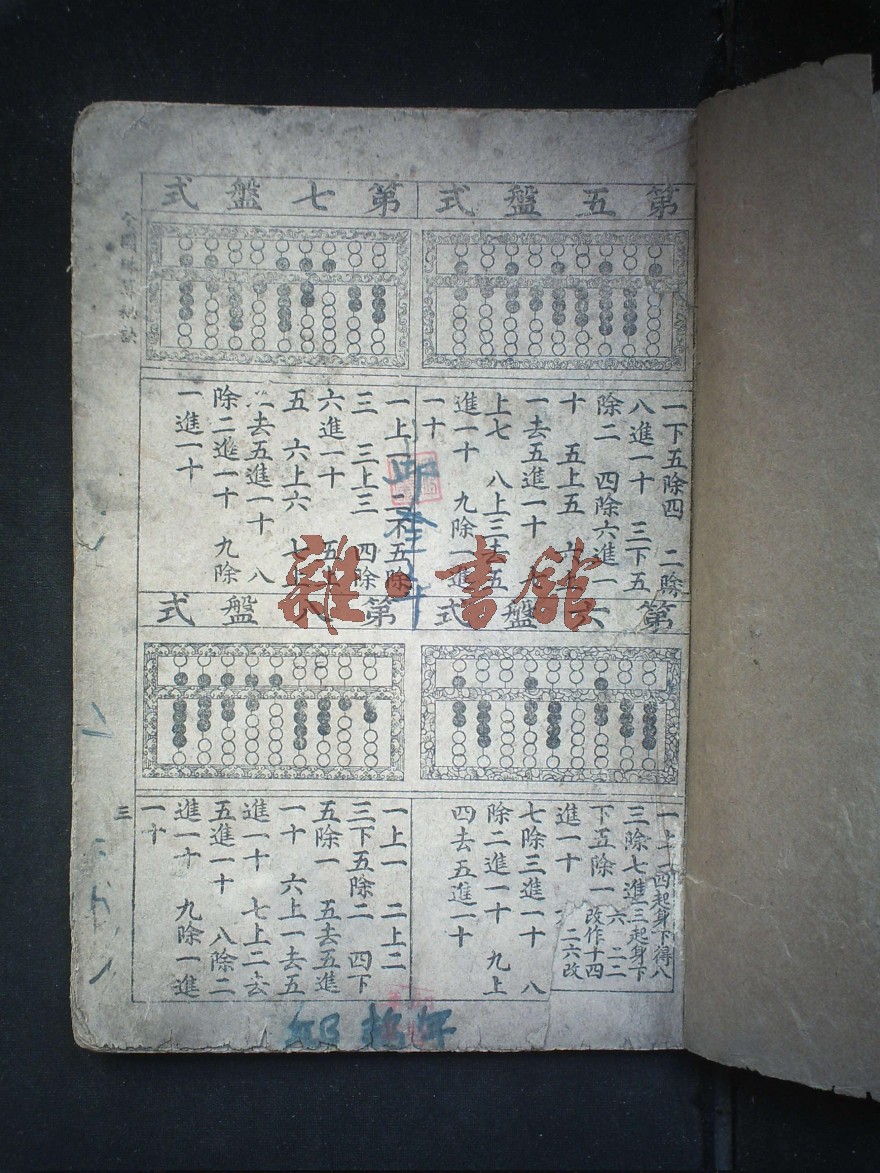 第五盤式
一下五除四 二除
八進一十 三下五
除二 四除六進一
十 五上五 六
一去五進一十 七
上七 八上三去五
進一十 九除一進
一十
第六盤式
一上一
三除七進
下五除一
進一十
七除三進一十 八
除二進一十 九上
四去五進一十
四起身下得八
三起身下
改作十四
二六改
第七盤式
一上一 二下五除
三 三上三 四除
六進一十 五上
五 六上六 七上
二去五進一十 八
除二進一十 九除
一進一十
第八盤式
一上一 二上二
三下五除二 四下
五除一 五去五進
一十 六上一去五
進一十 七上二去
五進一十 八除二
進一十 九除一進
一十
三
雜·書館